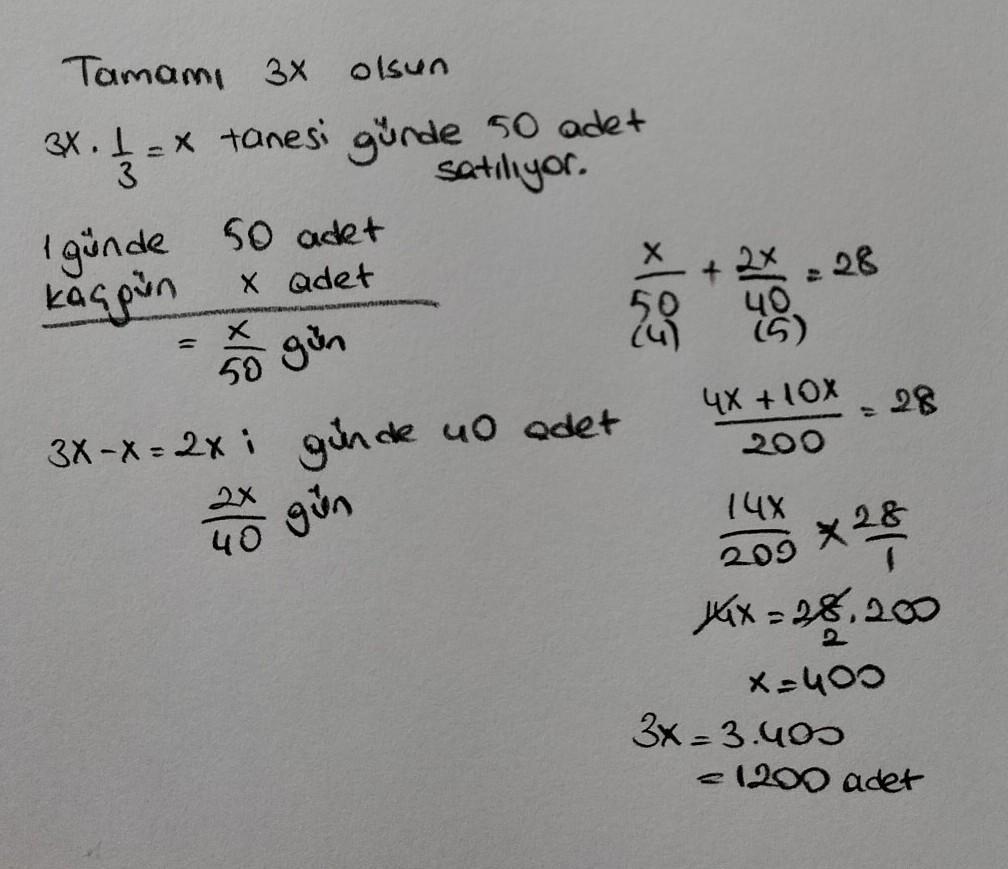 Tamamı 3x olsun
3x . 1/3 = x tanesi günde 50 adet
satılıyor.
1 günde 50 adet
kaç gün x adet
= x/50 gün
3x - x = 2x i günde 40 adet
2x/40 gün
x/50 + 2x/40 = 28
(4) (5)
4x + 10x / 200 = 28
14x/200 × 28/1
14x = 28 . 200
2
x = 400
3x = 3.400
= 1200 adet